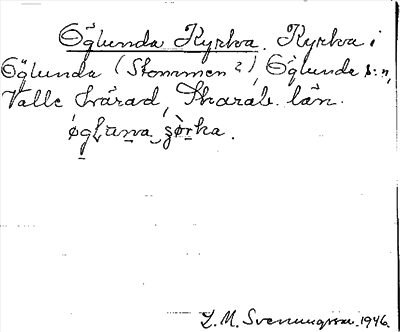 Öglunda Kyrka. Kyrka i
Öglunda (Stommen?), Öglunda s:n,
Valle härad, Skarab. län.
L. M. Svenungsson. 1946.